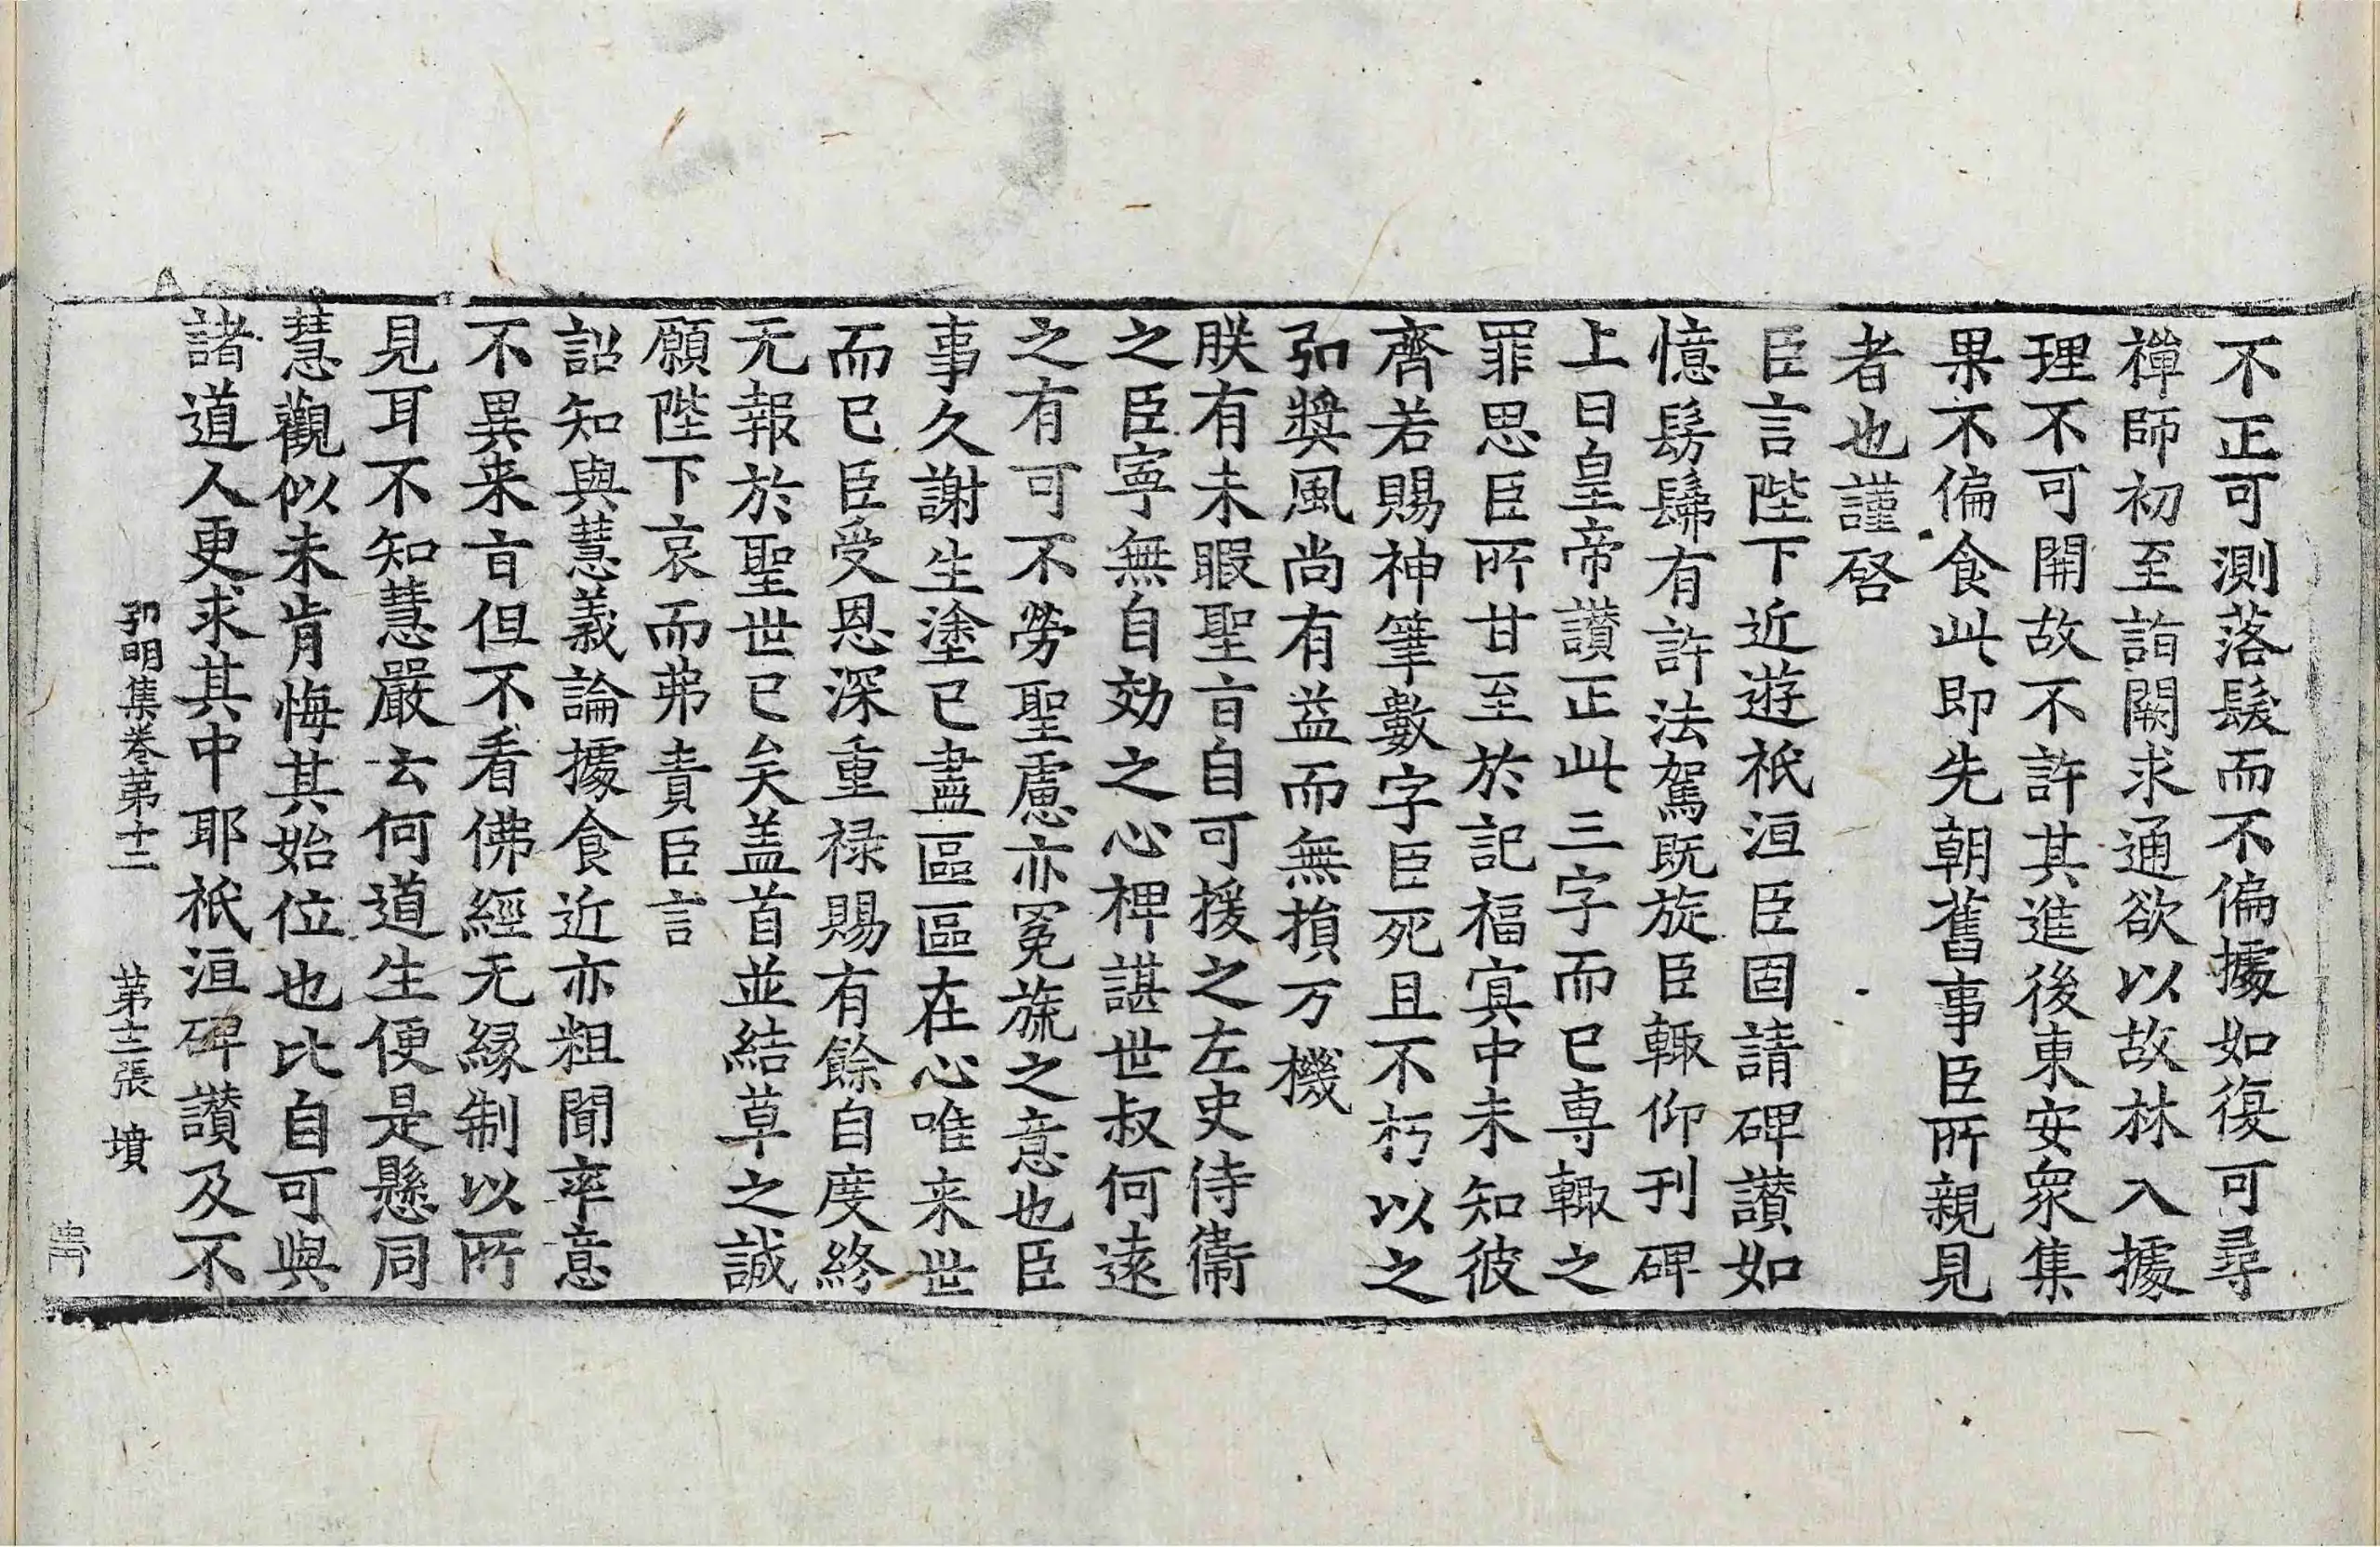 不正可測落髮而不偏據如復可尋
禪師初至詣闕求通欲以故林入據
理不可開故不許其進後東安衆集
果不偏食此即先朝舊事臣所親見
者也謹啓
臣言陛下近遊祇洹臣固請碑讃如
憶髣髴有許法駕既旋臣輙仰刊碑
上曰皇帝讃正此三字而已專輙之
罪思臣所甘至於記福冥中未知彼
齊若賜神筆數字臣死且不朽以之
弘奬風尚有益而無損万機
朕有未暇聖旨自可援之左史侍衞
之臣寜無自効之心裨諶世叔何遠
之有可不勞聖慮亦冕旒之意也臣
事久謝生塗已盡區區在心唯来世
而已臣受恩深重禄賜有餘自度終
无報於聖世已矣盖首並結草之誠
願陛下哀而弗責臣言
詔知與慧義論據食近亦粗聞率意
不異来旨但不看佛經无緣制以所
見耳不知慧嚴云何道生便是懸同
慧觀似未肯悔其始位也比自可與
諸道人更求其中耶祇洹碑讃及不
弘明集卷第十二　第十二張　墳